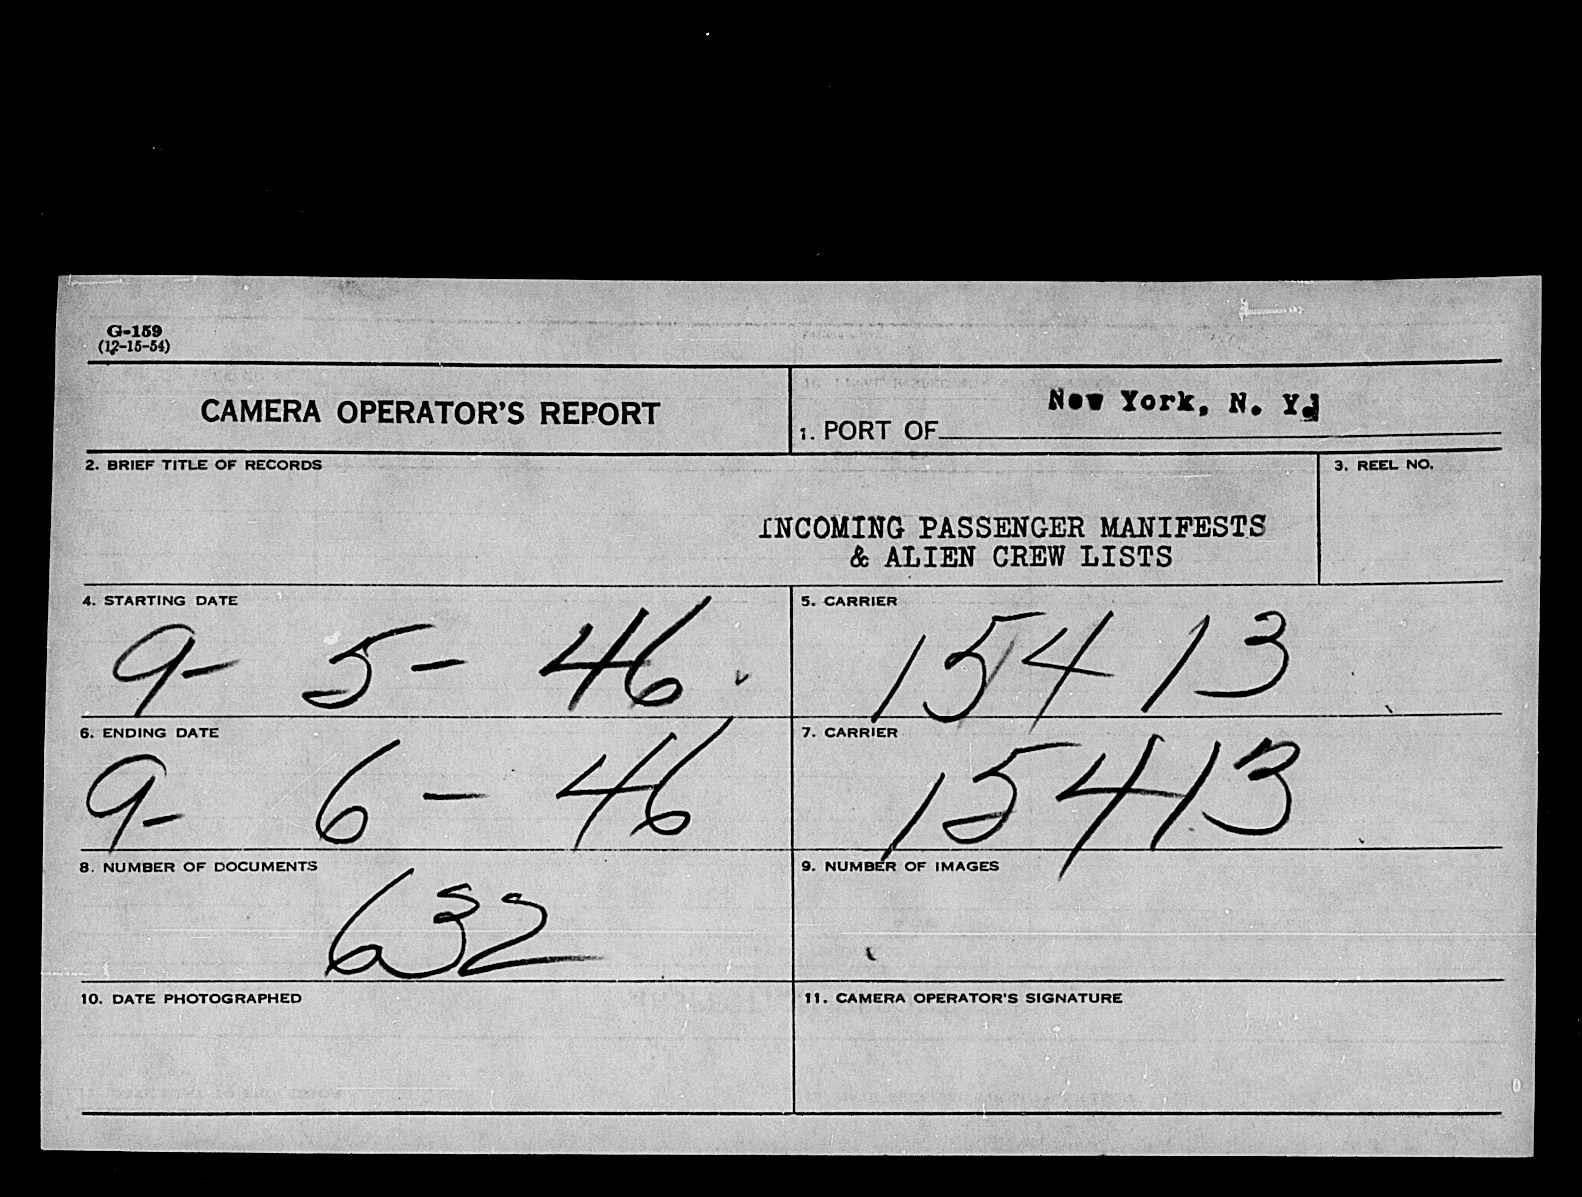 G-159
(12-15-54)
CAMERA OPERATOR'S REPORT
1. PORT OF New York, N. Y.
2. BRIEF TITLE OF RECORDS
3. REEL NO.
INCOMING PASSENGER MANIFESTS
& ALIEN CREW LISTS
4. STARTING DATE
9- 5- 46
5. CARRIER
15413
6. ENDING DATE
9- 6- 46
7. CARRIER
15413
8. NUMBER OF DOCUMENTS
632
9. NUMBER OF IMAGES
10. DATE PHOTOGRAPHED
11. CAMERA OPERATOR'S SIGNATURE